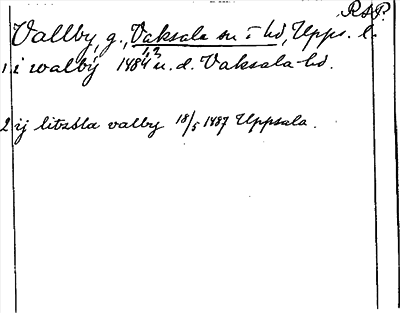 RAP.
Vallby, g., Vaksala sn o hd, Upps. l.
1 i walby 1484 u. d. Vaksala hd.
2 ij litzsla valby 18/5 1487 Uppsala.